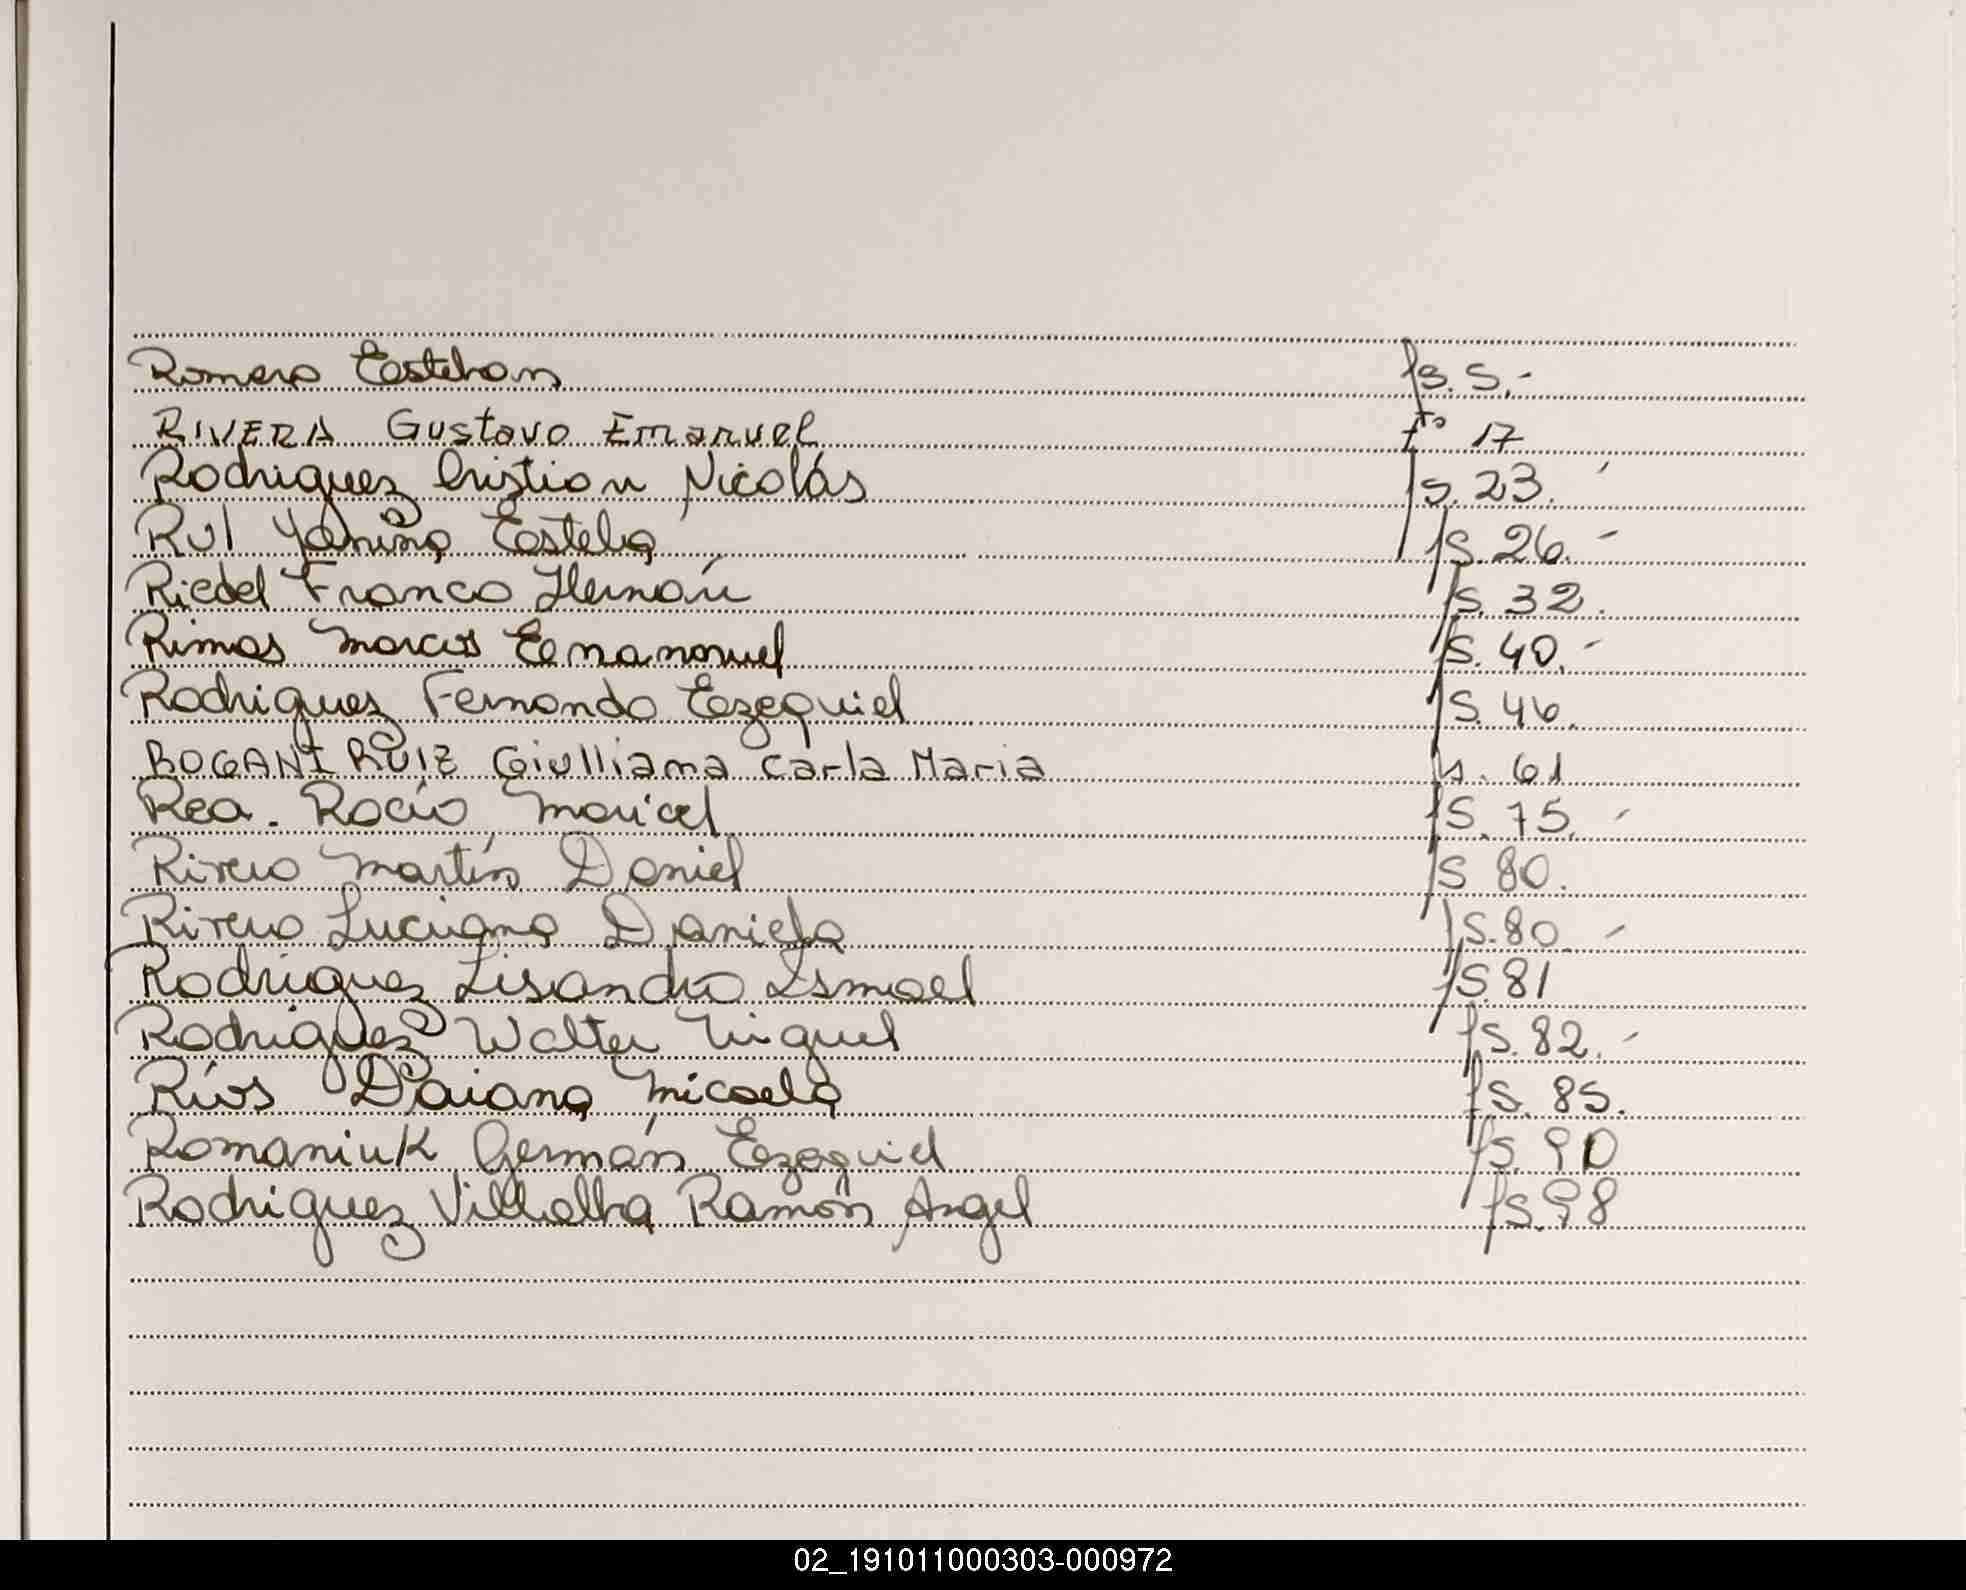 Romero Esteban fs. 5.-
RIVERA Gustavo Emanuel fº 17
Rodriguez Cristian Nicolás fs. 23.
Rul Yanina Estela fs. 26.-
Riedel Franco Hernán fs. 32.
Rimas Marcos Emanuel fs. 40.-
Rodriguez Fernando Ezequiel fs. 46.
ROGANI RUIZ Giulliana Carla Maria fs. 61
Rea. Rocío Maricel fs. 75.-
Rivero Martín Daniel fs 80.
Rivero Luciana Daniela fs. 80.-
Rodriguez Lisandro Ismael fs 81
Rodriguez Walter Miguel fs. 82.-
Ríos Daiana Micaela fs. 85.
Romaniuk Germán Ezequiel fs. 90
Rodriguez Villalba Ramón Angel fs. 98
02_191011000303-000972